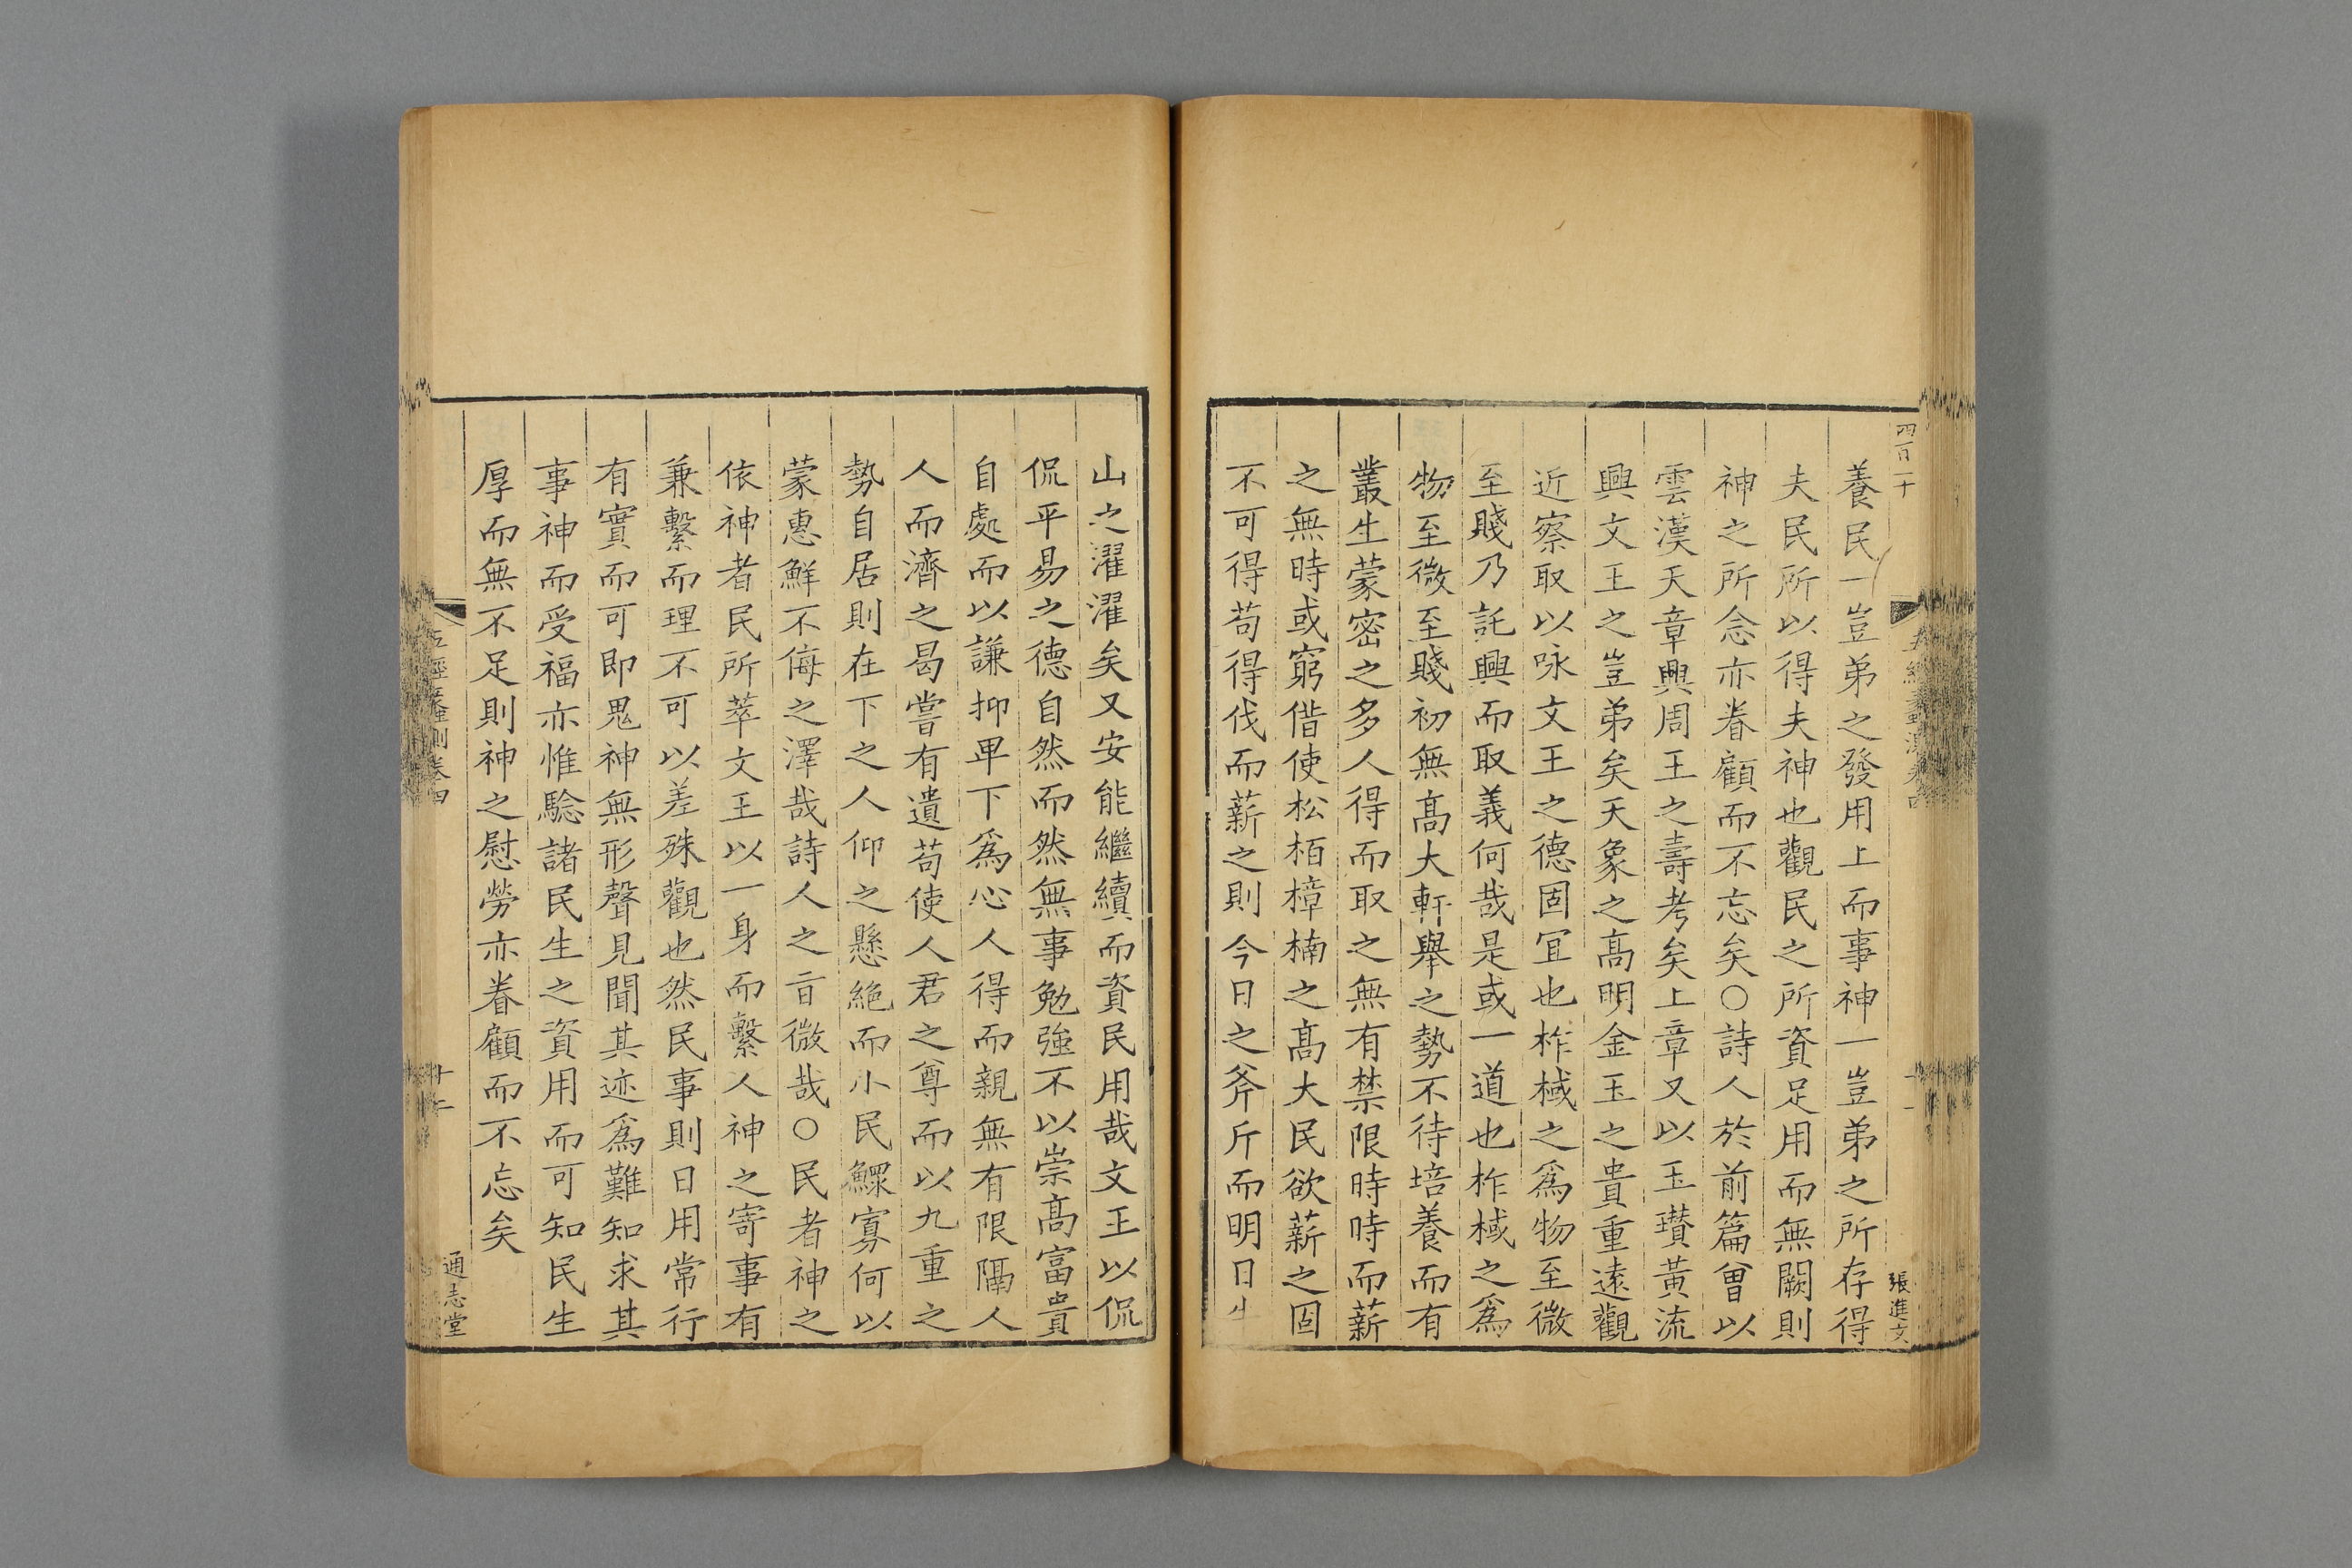 四百二十
張進文
養民一豈弟之發用上而事神一豈弟之所存得
夫民所以得夫神也觀民之所資足用而無闕則
神之所念亦眷顧而不忘矣○詩人於前篇曾以
雲漢天章興周王之壽考矣上章又以玉瓚黃流
興文王之豈弟矣天象之髙明金玉之貴重逺觀
近察取以咏文王之德固宜也柞棫之爲物至微
至賤乃託興而取義何哉是或一道也柞棫之爲
物至微至賤初無髙大軒舉之勢不待培養而有
叢生蒙密之多人得而取之無有禁限時時而薪
之無時或窮借使松栢樟楠之髙大民欲薪之固
不可得苟得伐而薪之則今日之斧斤而明日
山之濯濯矣又安能繼續而資民用哉文王以侃
侃平易之德自然而然無事勉強不以崇髙富貴
自處而以謙抑卑下爲心人得而親無有限隔人
人而濟之曷嘗有遺苟使人君之尊而以九重之
勢自居則在下之人仰之懸絶而小民鰥寡何以
蒙惠鮮不侮之澤哉詩人之㫖微哉○民者神之
依神者民所萃文王以一身而繫人神之寄事有
兼繫而理不可以差殊觀也然民事則日用常行
有實而可即鬼神無形聲見聞其迹爲難知求其
事神而受福亦惟騐諸民生之資用而可知民生
厚而無不足則神之慰勞亦眷顧而不忘矣
卷四
十二
通志堂